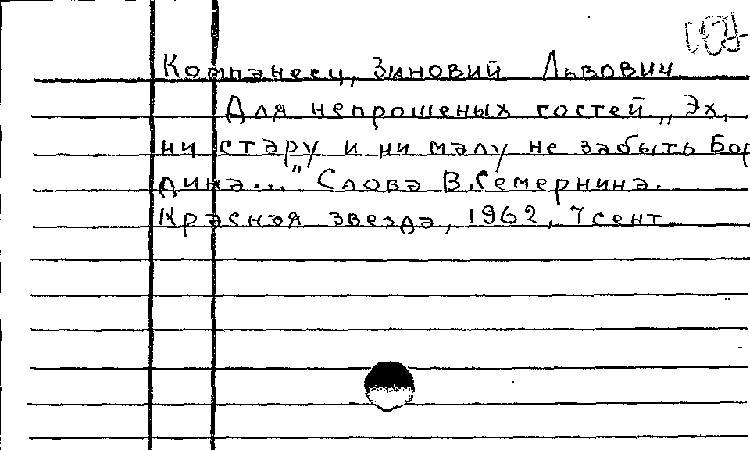 Компанеец, Зиновий Львович
Для непрошеных гостей „Эх,
ни стару и ни малу не забыть Бор
дина..." Слова В.Семернина.
Красная звезда, 1962, 7 сент